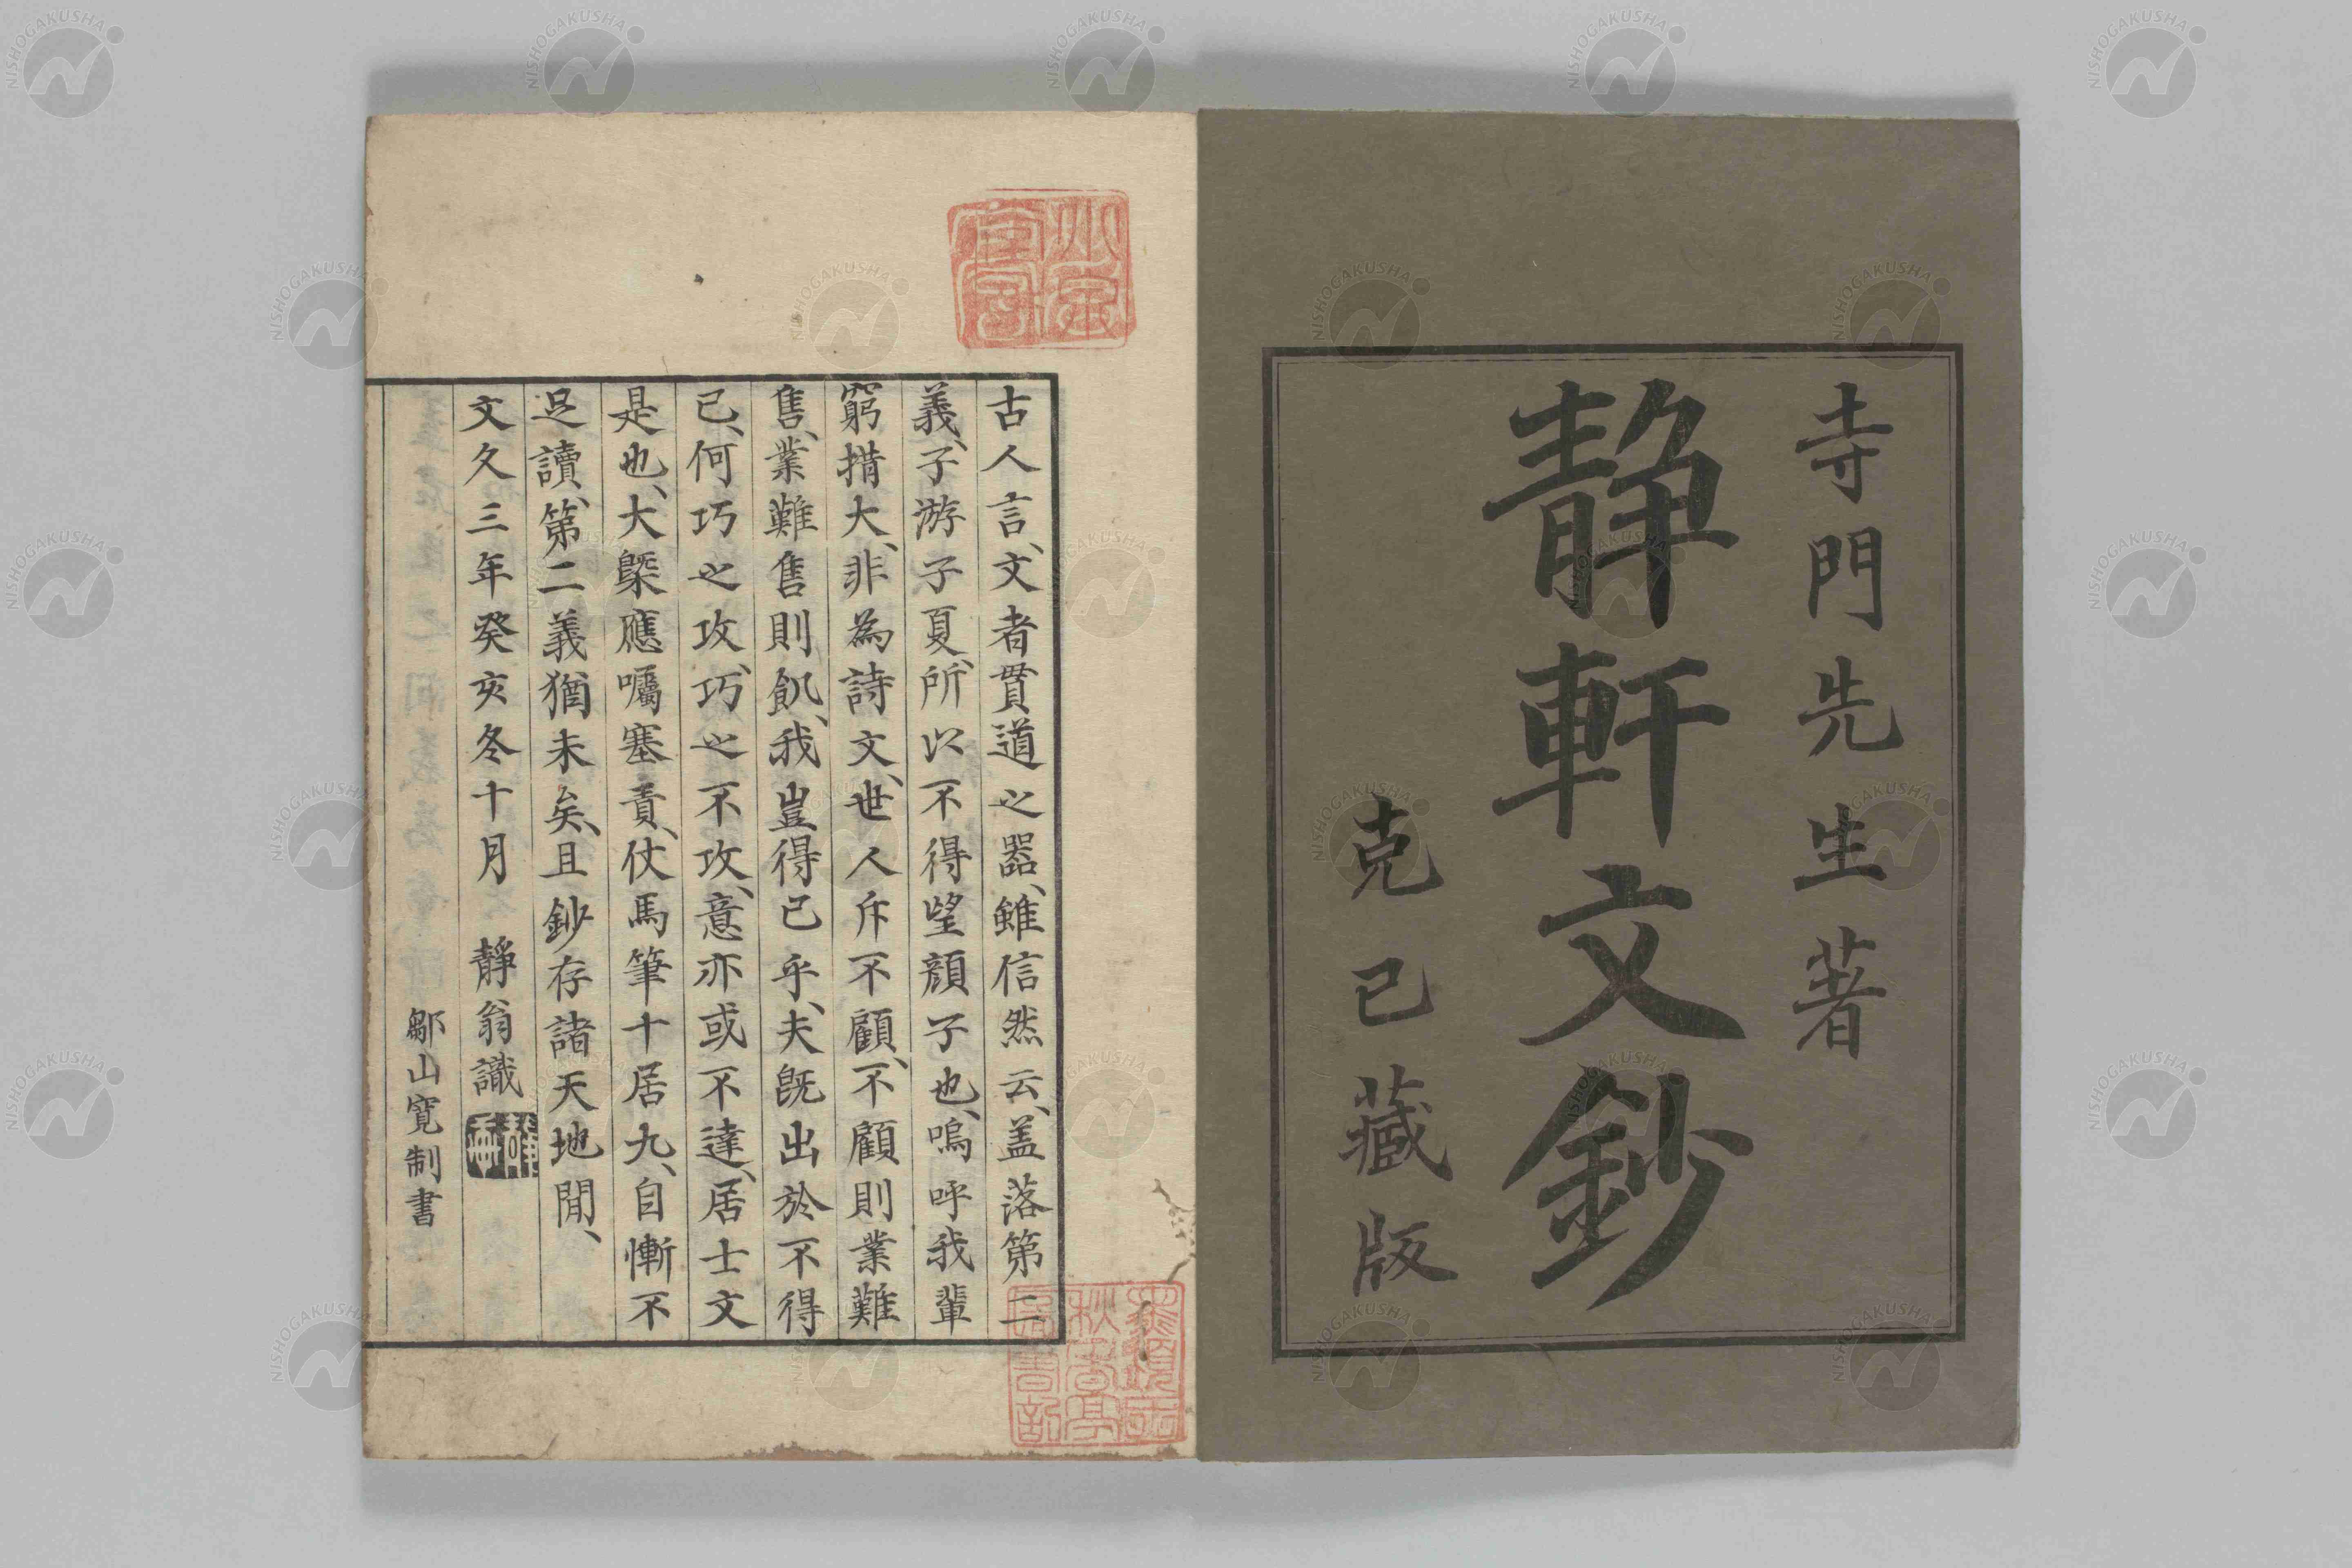 寺門先生著
静軒文鈔
克己藏版
古人言、文者貫道之器、雖信然云、盖落第二
義、子游子夏、所以不得望顔子也、嗚呼我輩
窮措大、非為詩文、世人斥不顧、不顧則業難
售、業難售則飢、我豈得已乎、夫既出於不得
已、何巧之攻、巧之不攻、意亦或不達、居士文
是也、大槩應囑塞責、仗馬筆十居九、自慚不
足讀、第二義猶未矣、且鈔存諸天地間、
文久三年癸亥冬十月 靜翁識
鄒山寛制書
NISHOGAKUSHA